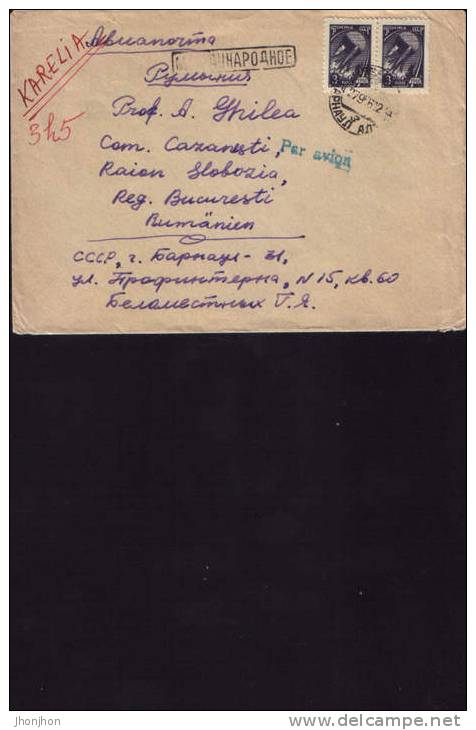 KARELIA
3h5
Авиапочта
МЕЖДУНАРОДНОЕ
Румыния
Prof. A. Ghilea
Com. Cazanesti,
Par avion
Raion Slobozia,
Reg. Bucuresti
Rumänien
СССР, г. Барнаул-31,
ул. Профинтерна, N 15, кв. 60
Беламестных Г. Я.
jhonjhon
www.delcampe.net